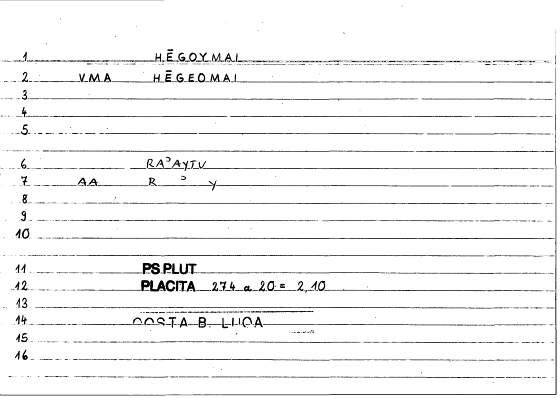 1 HĒGOYMAI
2 VMA HĒGEOMAI
3
4
5
6 RAɔAYTU
7 AA R ɔ y
8
9
10
11 PS.PLUT
12 PLACITA 274 a 20 = 2,10
13
14 COSTA B. LUCA
15
16